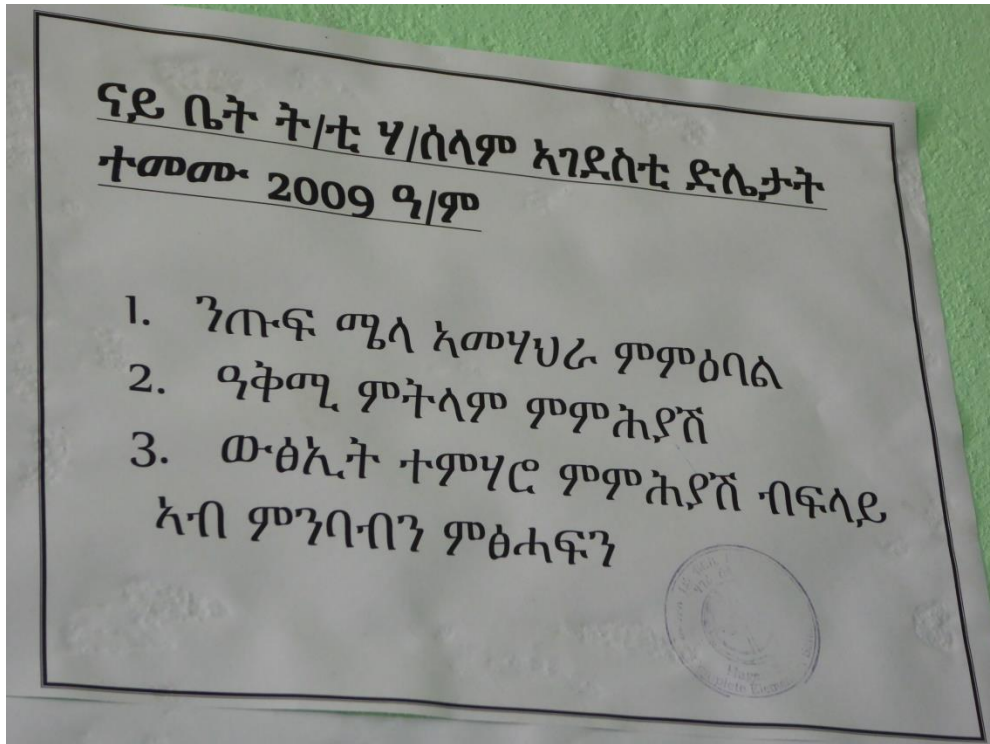 ናይ ቤት ት/ቲ ሃ/ሰላም ኣገደስቲ ድሌታት
ተመሙ 2009 ዓ/ም
1. ንጡፍ ሜላ ኣመሃህራ ምምዕባል
2. ዓቅሚ ምትላም ምምሕያሽ
3. ውፅኢት ተምሃሮ ምምሕያሽ ብፍላይ
ኣብ ምንባብን ምፅሓፍን